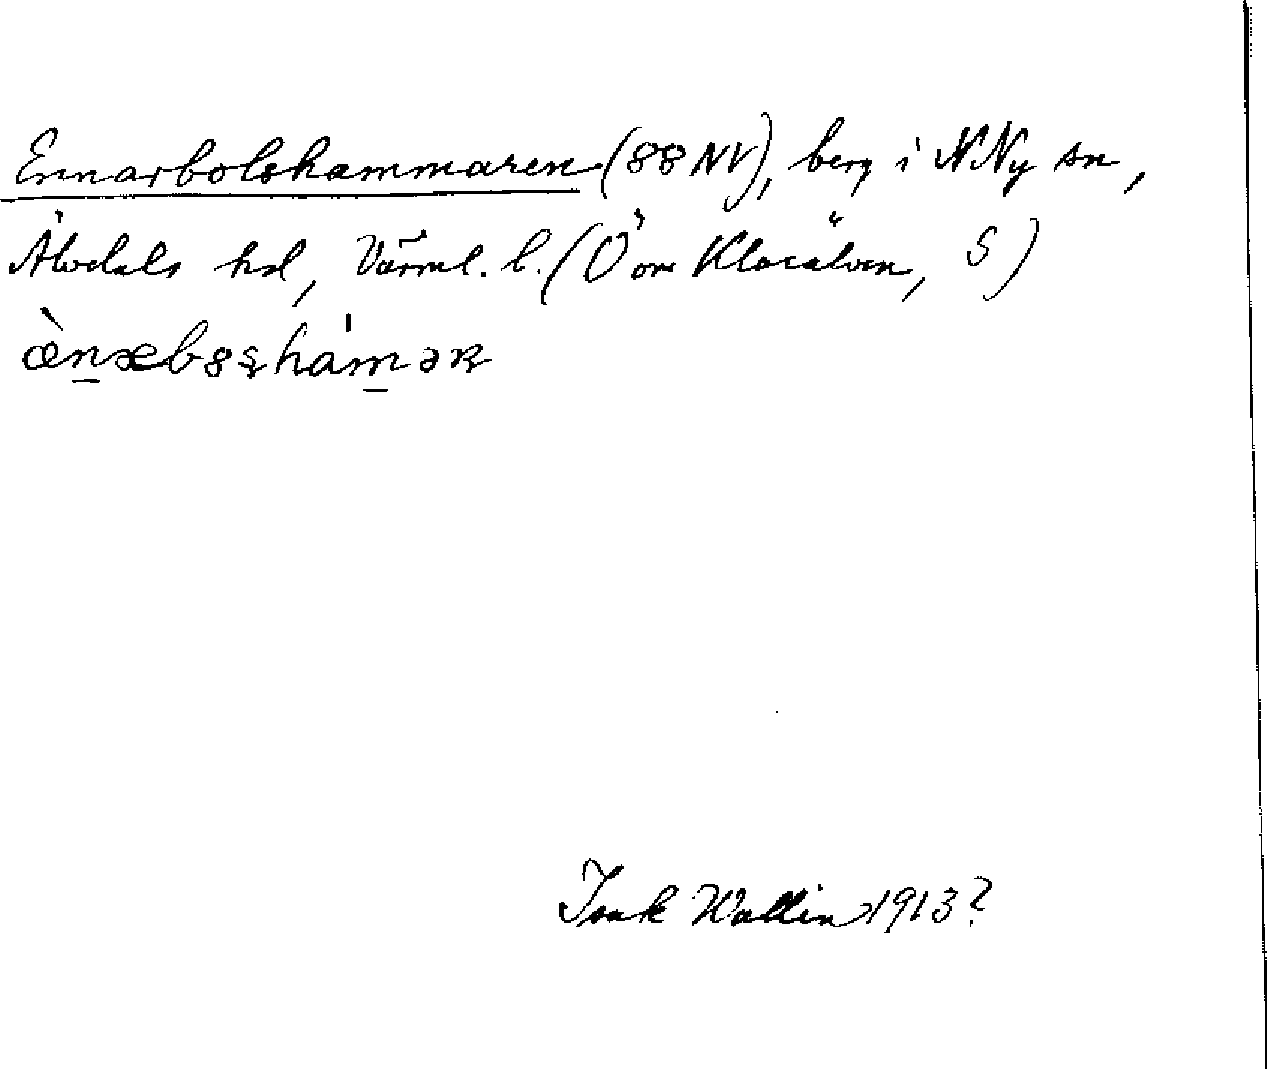 Ennarbolshammaren (88 NV), berg i N Ny sn,
Älvdals hd, Värml. l. (Ö om Klarälven, S)
œ̀n̲æbꞩshám̲əʀ
Isak Wallin 1913?